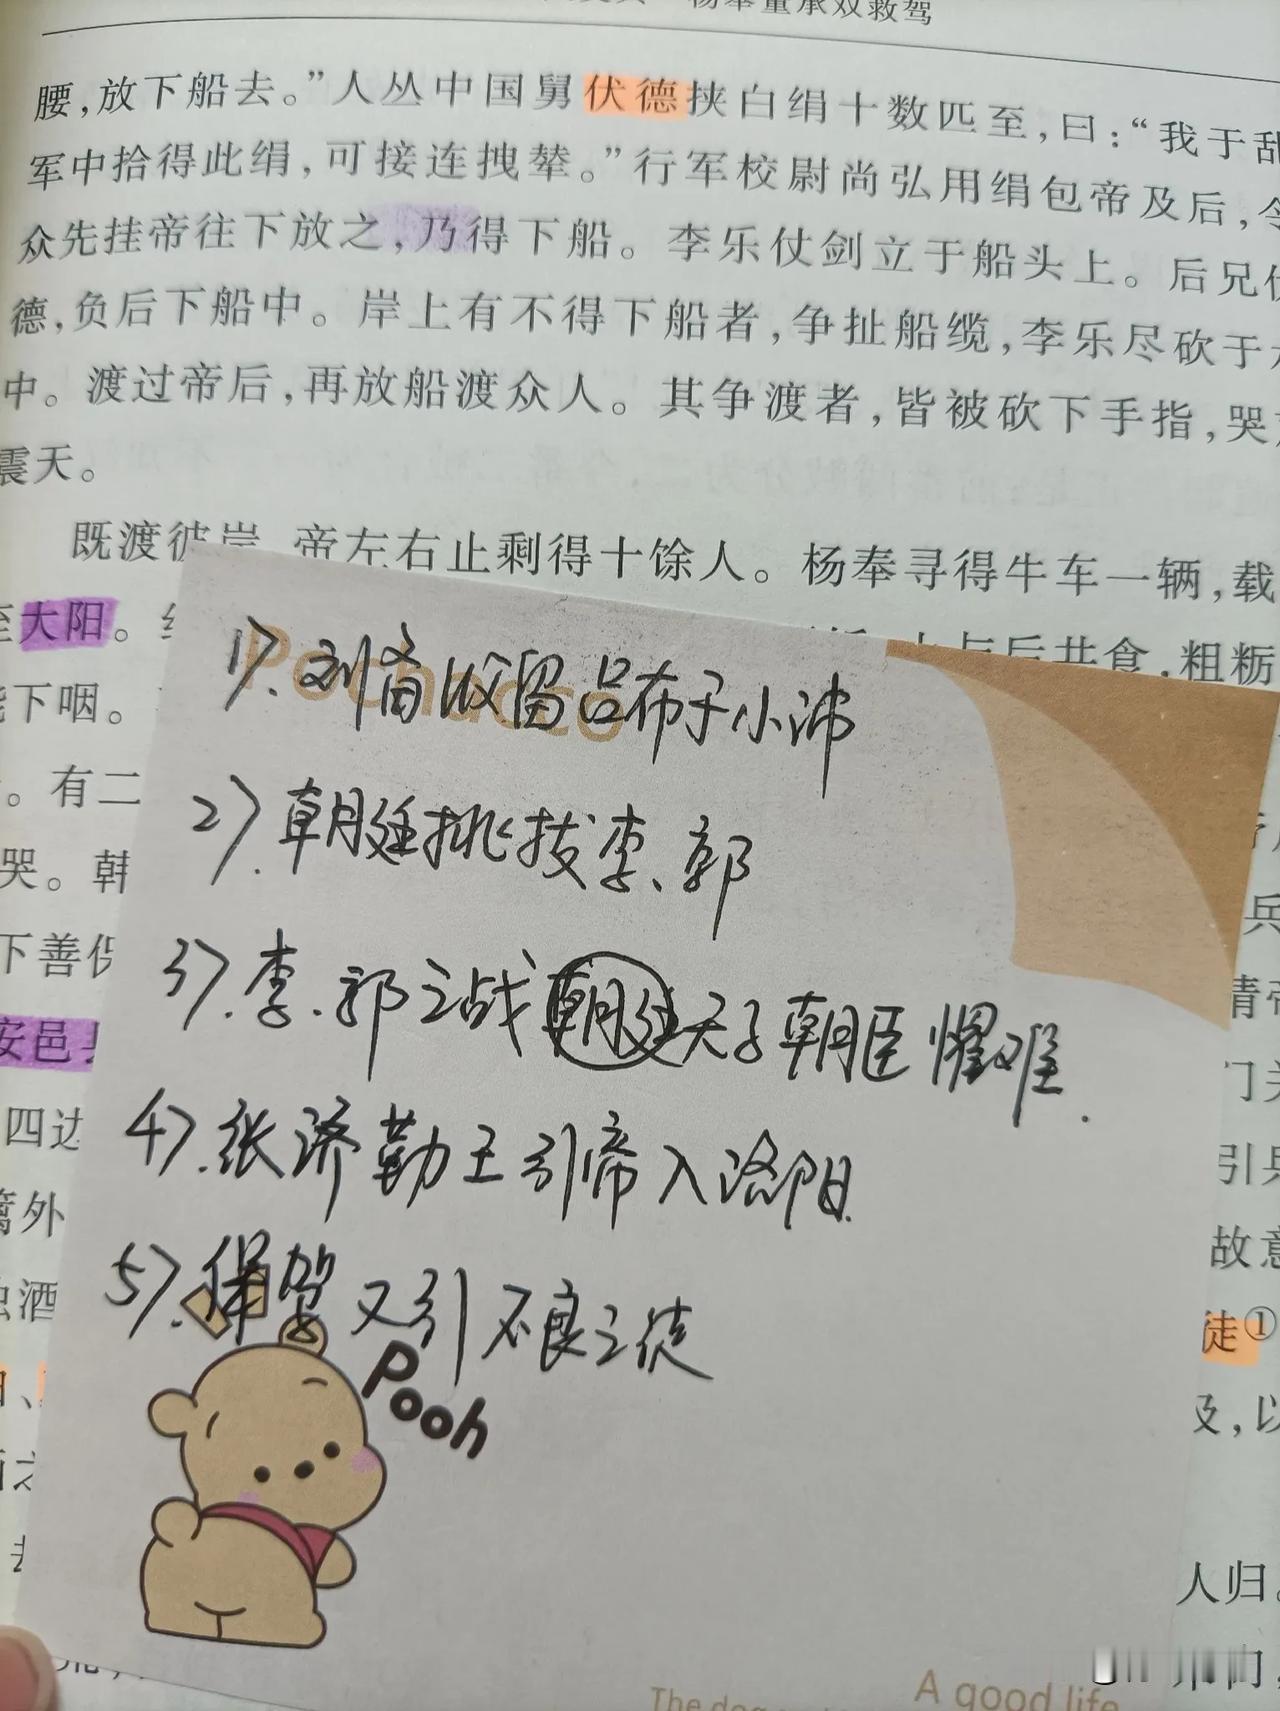 杨奉董承双救驾
腰,放下船去。”人丛中国舅伏德挟白绢十数匹至,曰:“我于乱
军中拾得此绢,可接连拽辇。”行军校尉尚弘用绢包帝及后,令
众先挂帝往下放之,乃得下船。李乐仗剑立于船头上。后兄伏
德,负后下船中。岸上有不得下船者,争扯船缆,李乐尽砍于
中。渡过帝后,再放船渡众人。其争渡者,皆被砍下手指,哭
震天。
既渡彼岸,帝左右止剩得十馀人。杨奉寻得牛车一辆,载
至大阳。
与后共食,粗粝
下咽。
。有二
哭。韩
下善保
安邑县
四边
篱外
浊酒
兵
请帝
门关
引兵
故意
徒①
及,以
人归。
1>.刘备收留吕布于小沛
2>.朝廷挑拨李、郭
3>.李.郭之战朝廷天子朝臣惧难.
4>.张济勤王引帝入洛阳.
5>.保驾又引不良之徒
Pochacco
Pooh
The dog
A good life